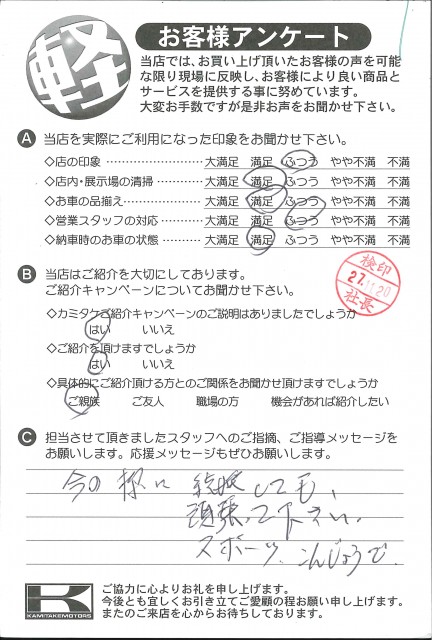 軽
お客様アンケート
当店では、お買い上げ頂いたお客様の声を可能
な限り現場に反映し、お客様により良い商品と
サービスを提供する事に努めています。
大変お手数ですが是非お声をお聞かせ下さい。
A 当店を実際にご利用になった印象をお聞かせ下さい。
◇店の印象 ………………… 大満足 満足 ふつう やや不満 不満
◇店内・展示場の清掃………… 大満足 満足 ふつう やや不満 不満
◇お車の品揃え……………… 大満足 満足 ふつう やや不満 不満
◇営業スタッフの対応 ………… 大満足 満足 ふつう やや不満 不満
◇納車時のお車の状態 ………… 大満足 満足 ふつう やや不満 不満
検印
27.11.20
社長
B 当店はご紹介を大切にしております。
ご紹介キャンペーンについてお聞かせ下さい。
◇カミタケご紹介キャンペーンのご説明はありましたでしょうか
はい いいえ
◇ご紹介を頂けますでしょうか
はい いいえ
◇具体的にご紹介頂ける方とのご関係をお聞かせ頂けますでしょうか
ご親族 ご友人 職場の方 機会があれば紹介したい
C 担当させて頂きましたスタッフへのご指摘、ご指導メッセージを
お願いします。応援メッセージもぜひお願いします。
今の様に 結婚しても、
頑張って下さい。
スポーツ、こんじょうで。
K
KAMITAKEMOTORS
ご協力に心よりお礼を申し上げます。
今後とも宜しくお引き立てご愛顧の程お願い申し上げます。
またのご来店を心からお待ちしております。